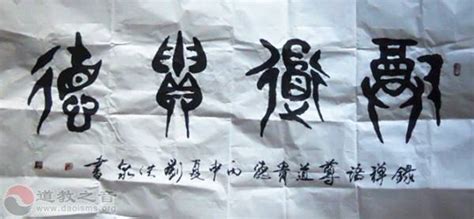 尊道貴德
錄禪語尊道貴德丙申夏劉泉書
道教之音
www.daoisms.org